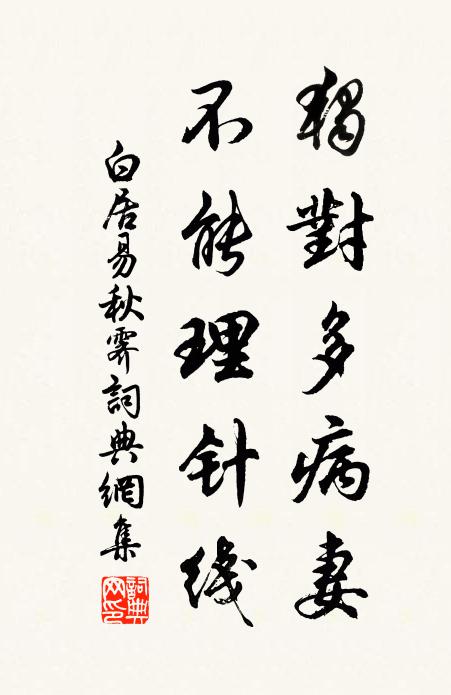 獨對多病妻
不能理针线
白居易秋霽詞典網集
詞典网印